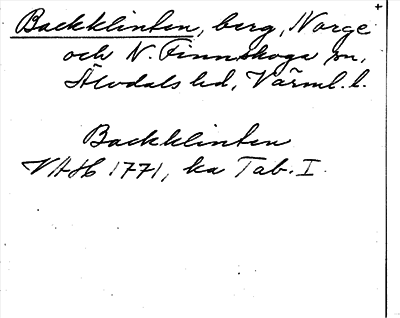 Backklinten, berg, Norge
och N. Finnskoga sn,
Älvdals hd, Värml. l.
Backklinten
VAH 1771, ka Tab. I.